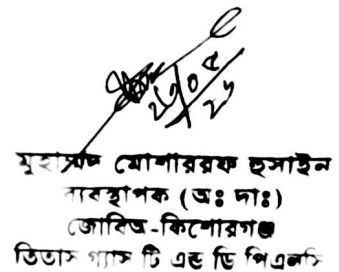 মুহাম্মদ মোশাররফ হুসাইন
ব্যবস্থাপক (অঃ দাঃ)
জোবিঅ-কিশোরগঞ্জ
তিতাস গ্যাস টি এন্ড ডি পিএলসি